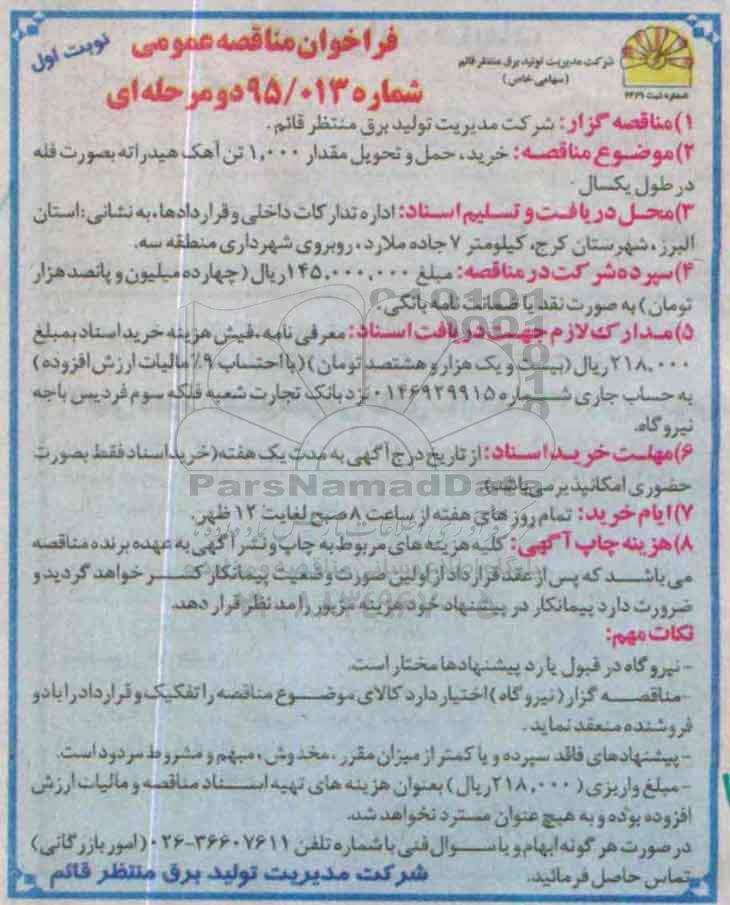 نوبت اول
فراخوان مناقصه عمومی
شماره ۹۵/۰۱۳ دو مرحله ای
شرکت مدیریت تولید برق منتظر قائم
(سهامی خاص)
۱)مناقصه گزار: شرکت مدیریت تولید برق منتظر قائم.
۲)موضوع مناقصه: خرید، حمل و تحویل مقدار ۱,۰۰۰ تن آهک هیدراته بصورت فله
در طول یکسال
۳)محل دریافت و تسلیم اسناد: اداره تدارکات داخلی و قراردادها، به نشانی: استان
البرز، شهرستان کرج، کیلومتر ۷ جاده ملارد، روبروی شهرداری منطقه سه.
۴)سپرده شرکت در مناقصه: مبلغ ۱۴۵,۰۰۰,۰۰۰ ریال (چهارده میلیون و پانصد هزار
تومان) به صورت نقد یا ضمانت نامه بانکی.
۵)مدارک لازم جهت دریافت اسناد: معرفی نامه، فیش هزینه خرید اسناد بمبلغ
۲۱۸,۰۰۰ ریال (بیست و یک هزار و هشتصد تومان) (با احتساب ۹٪ مالیات ارزش افزوده)
به حساب جاری شماره ۰۱۴۶۹۲۹۹۱۵ نزد بانک تجارت شعبه فلکه سوم فردیس باجه
نیروگاه.
۶)مهلت خرید اسناد: از تاریخ درج آگهی به مدت یک هفته (خرید اسناد فقط بصورت
حضوری امکانپذیر می باشد)
ParsNamadData
۷)ایام خرید: تمام روزهای هفته از ساعت ۸ صبح لغایت ۱۲ ظهر.
۸)هزینه چاپ آگهی: کلیه هزینه های مربوط به چاپ و نشر آگهی به عهده برنده مناقصه
می باشد که پس از عقد قرارداد از اولین صورت وضعیت پیمانکار کسر خواهد گردید و
ضرورت دارد پیمانکار در پیشنهاد خود هزینه مزبور را مد نظر قرار دهد.
نکات مهم:
- نیروگاه در قبول یا رد پیشنهادها مختار است.
- مناقصه گزار (نیروگاه) اختیار دارد کالای موضوع مناقصه را تفکیک و قرارداد را با دو
فروشنده منعقد نماید.
- پیشنهادهای فاقد سپرده و یا کمتر از میزان مقرر، مخدوش، مبهم و مشروط مردود است.
- مبلغ واریزی (۲۱۸,۰۰۰ ریال) بعنوان هزینه های تهیه اسناد مناقصه و مالیات ارزش
افزوده بوده و به هیچ عنوان مسترد نخواهد شد.
در صورت هر گونه ابهام و یا سوال فنی با شماره تلفن ۳۶۶۰۷۶۱۱-۰۲۶ (امور بازرگانی)
تماس حاصل فرمائید.
شرکت مدیریت تولید برق منتظر قائم